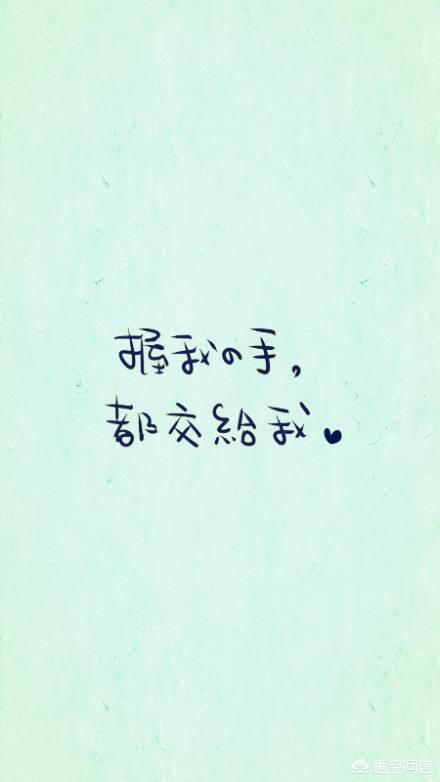 握我の手，
都交給我。
悟空问答